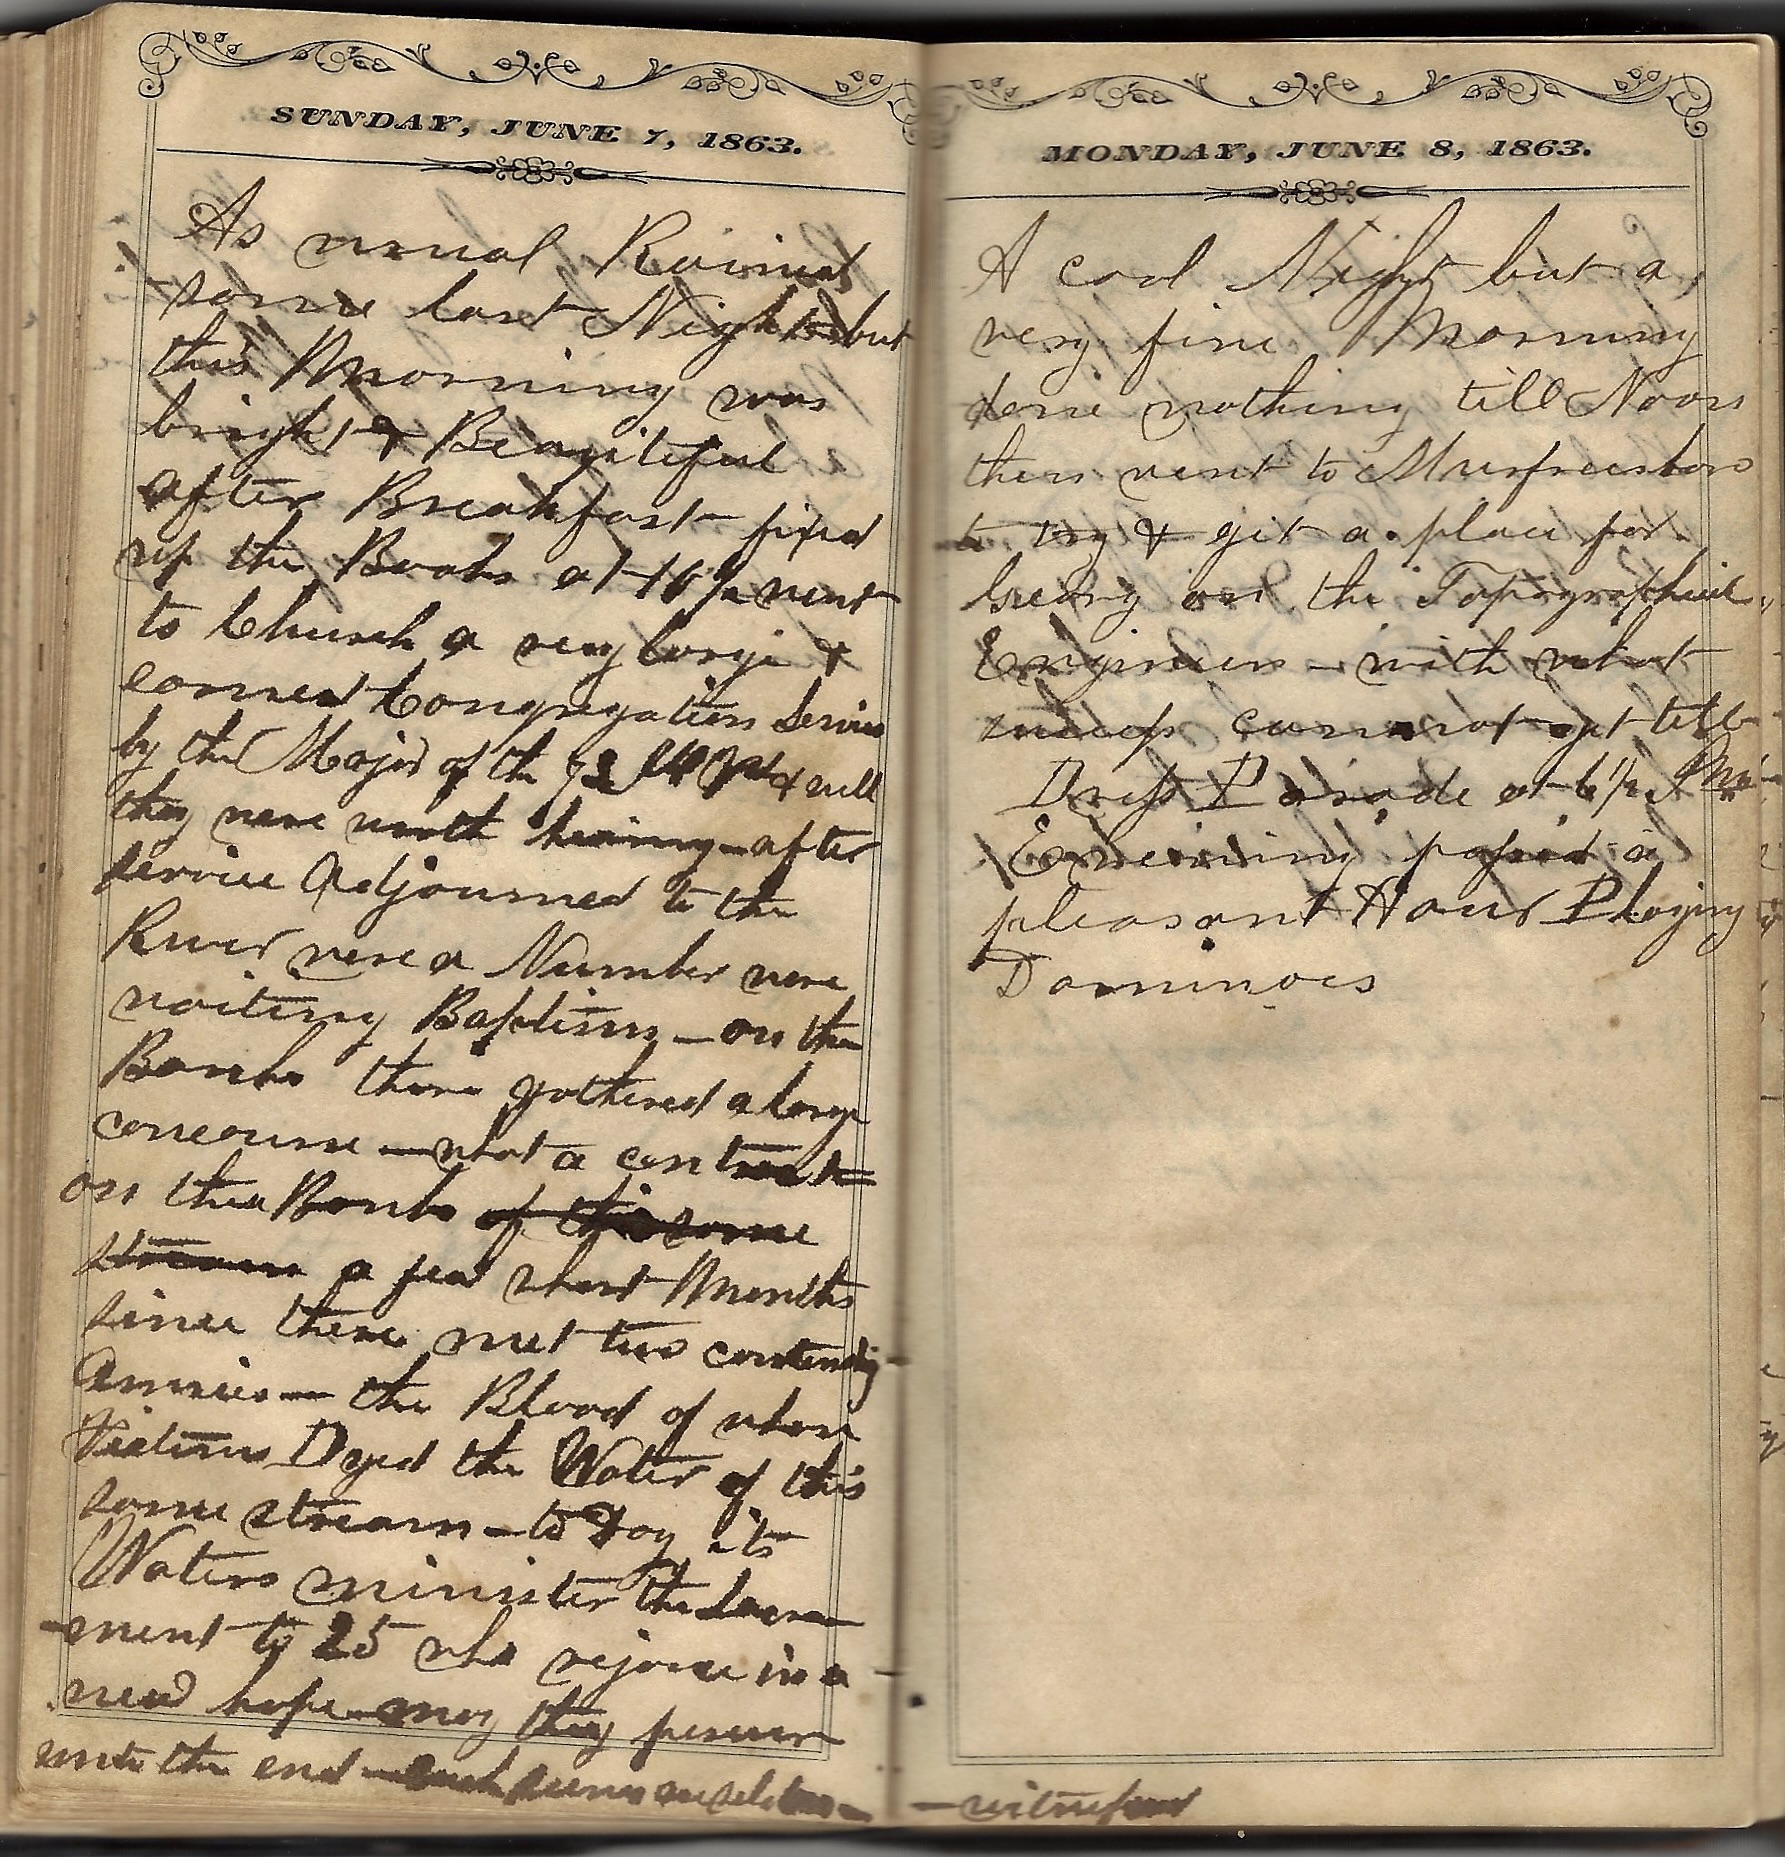 SUNDAY, JUNE 7, 1863.
As usual Rained
some last Night but
this Morning was
bright & Beautiful
after Breakfast fixed
up the Books at 10 1/2 went
to Church a very large &
earnest Congregation Service
by the Major of the & well
they were worth hearing - after
service Adjourned to the
River were a Number were
waiting Baptism - on the
Banks there gathered a large
concourse - what a contrast
on the Banks of this same
stream a few short Months
since there met two contending
Armies - the Blood of whose
Victims Dyed the Water of this
same stream - to Day its
Waters minister the sacra
-ment to 25 who rejoice in a
new hope - may they persever
unto the end - such scenes are seldom -
MONDAY, JUNE 8, 1863.
A cool Night but a
very fine Morning
done nothing till Noon
then went to Murfreesboro
to try & git a place for
on the Topographical
Engineers - with what
success cannot get till
Dress Parade at 6 1/2 PM
Evening passed a
pleasant Hour Playing
Dominoes
- witnessed